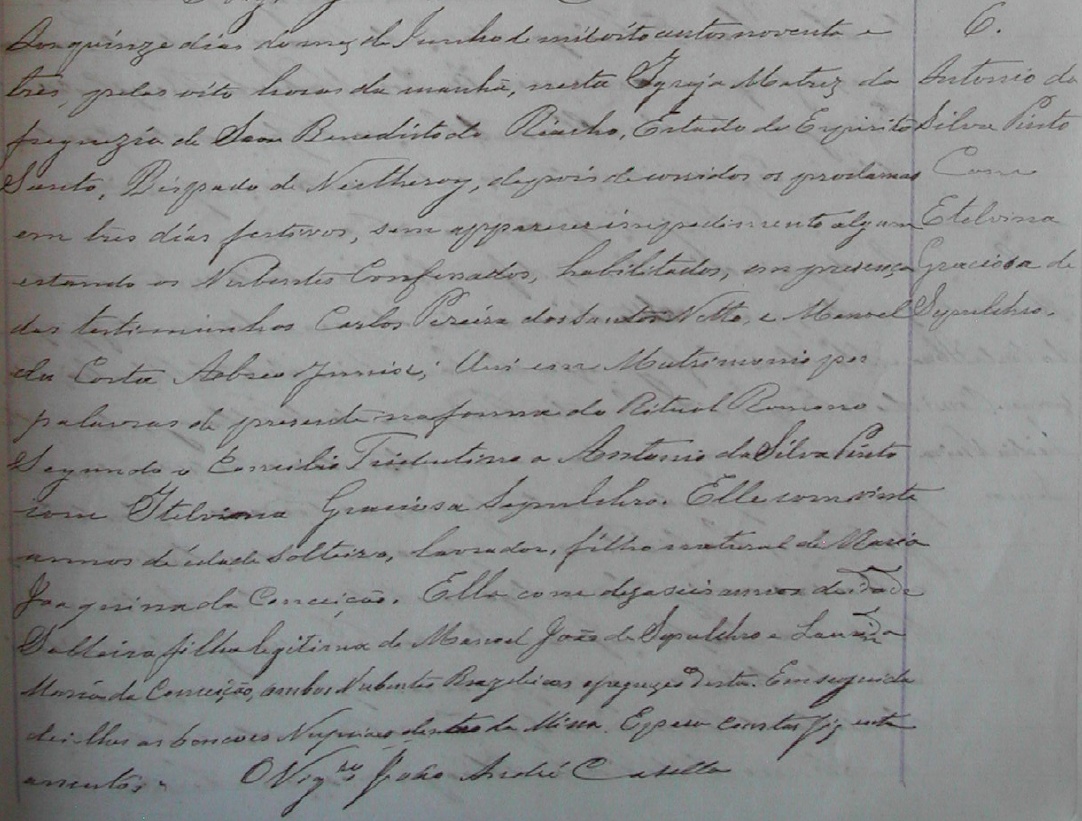 Aos quinze dias do mez de Junho de mil oito centos noventa e
tres, pelas oito horas da manhã, nesta Igreja Matriz da
freguezia de Sam Benedicto do Riacho, Estado do Espirito
Santo, Bispado de Nictheroy, depois de corridos os proclamas
em tres dias festivos, sem apparecer impedimento algum
estando os Nubentes Confessados, habilitados, em presença
das testimunhas Carlos Pereira dos Santos Netto, e Manoel
da Costa Abreo Junior; Uni em Matrimonio por
palavras de presente na forma do Ritual Romano
Segundo o Concilio Tridentino a Antonio da Silva Pinto
com Etelvina Graciosa Sepulchro. Elle com vinte
annos de idade Solteiro, lavrador, filho natural de Maria
Joaquina da Conceição. Ella com desaseis annos de idade
Solteira filha legitima de Manoel João de Sepulchro e
Maria da Conceição, ambos Nubentes Brazileiros e freguezes desta. Em seguida
dei lhes as bençoes Nupciaes dentro da Missa. E para constar fiz este
assento.
O Vigrº João André Casella
6.
Antonio da
Silva Pinto
Com
Etelvina
Graciosa de
Sepulchro.